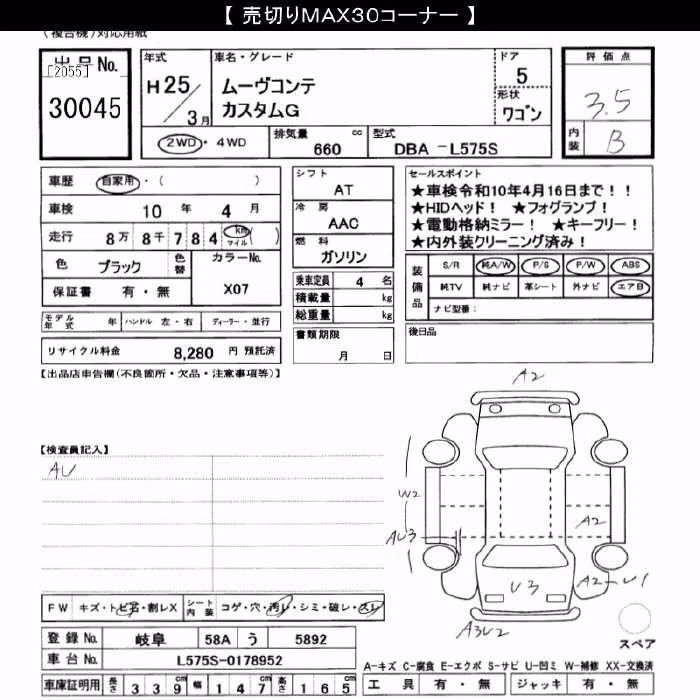 【 売切りMAX30コーナー 】
(複合機)対応用紙
出品No.
[2055]
30045
年式
H 25 / 3月
車名・グレード
ムーヴコンテ
カスタムG
ドア
5
形状
ワゴン
評価点
3.5
内装
B
2WD・4WD
排気量 cc
660
型式
DBA －L575S
車歴 自家用・( )
車検 10 年 4 月
走行 8万 8千 7 8 4 km マイル ( )
色 ブラック 色替
カラーNo.
X07
保証書 有・無
シフト
AT
冷房
AAC
燃料
ガソリン
乗車定員 4 名
積載量 kg
総重量 kg
書類期限
月 日
セールスポイント
★車検令和10年4月16日まで！！
★HIDヘッド！ ★フォグランプ！
★電動格納ミラー！ ★キーフリー！
★内外装クリーニング済み！
装備品
S/R 純A/W P/S P/W ABS
純TV 純ナビ 革シート 外ナビ エアB
ナビ型番：
後日品
モデル年式 年 ハンドル 左・右 ディーラー・並行
リサイクル料金 8,280 円 預託済
【出品店申告欄(不良箇所・欠品・注意事項等)】
【検査員記入】
AU
A2
W2
AU3
A2
U3
A2 U1
A3U2
スペア
FW キズ・トビ石・割レX シート内装 コゲ・穴・汚レ・シミ・破レ・スレ
登録 No. 岐阜 58A う 5892
車台 No. L575S-0178952
車庫証明用 長さ 3 3 9 幅 1 4 7 高さ 1 6 5
A-キズ C-腐食 E-エクボ S-サビ U-凹ミ W-補修 XX-交換済
工具 有・無 ジャッキ 有・無